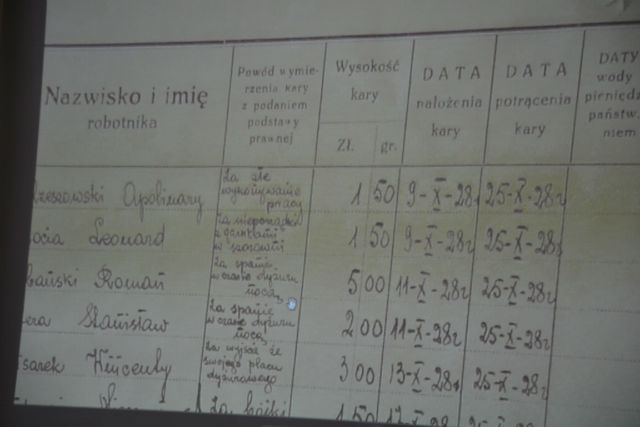 Nazwisko i imię
robotnika
Powód wymie-
rzenia kary
z podaniem
podstawy
prawnej
Wysokość
kary
Zł. gr.
DATA
nałożenia
kary
DATA
potrącenia
kary
DATY
wody
pieniędz
państw.
niem
rzeszowski Apolinary
Za złe
wykonywanie
pracy
1 50 9-X-28r 25-X-28r
ocia Leonard
za nieporządek
z
w
1 50 9-X-28r 25-X-28r
bański Roman
Za spanie
w czasie dyżuru
nocą
5 00 11-X-28r 25-X-28r
era Stanisław
Za spanie
w czasie dyżuru
nocą
2 00 11-X-28r 25-X-28r
sarek Wincenty
Za wyjście ze
swojego placu
dyżurowego
3 00 13-X-28r 25-X-28r
Za bójki
1 50